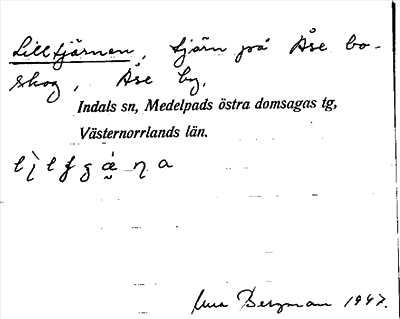 Lilltjärnen, tjärn på Åse bo-
skog, Åse by,
Indals sn, Medelpads östra domsagas tg,
Västernorrlands län.
Bergman 1947.